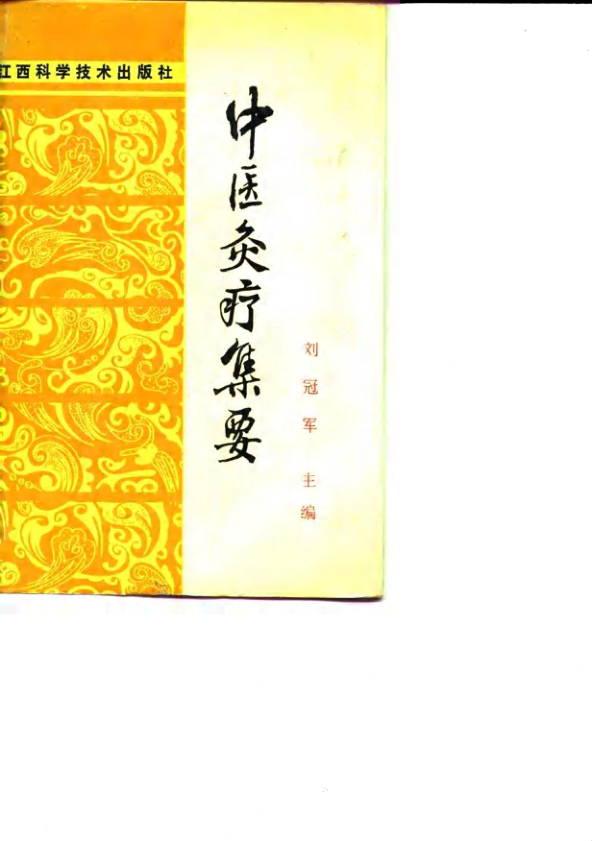 江西科学技术出版社
中医灸疗集要
刘冠军 主编